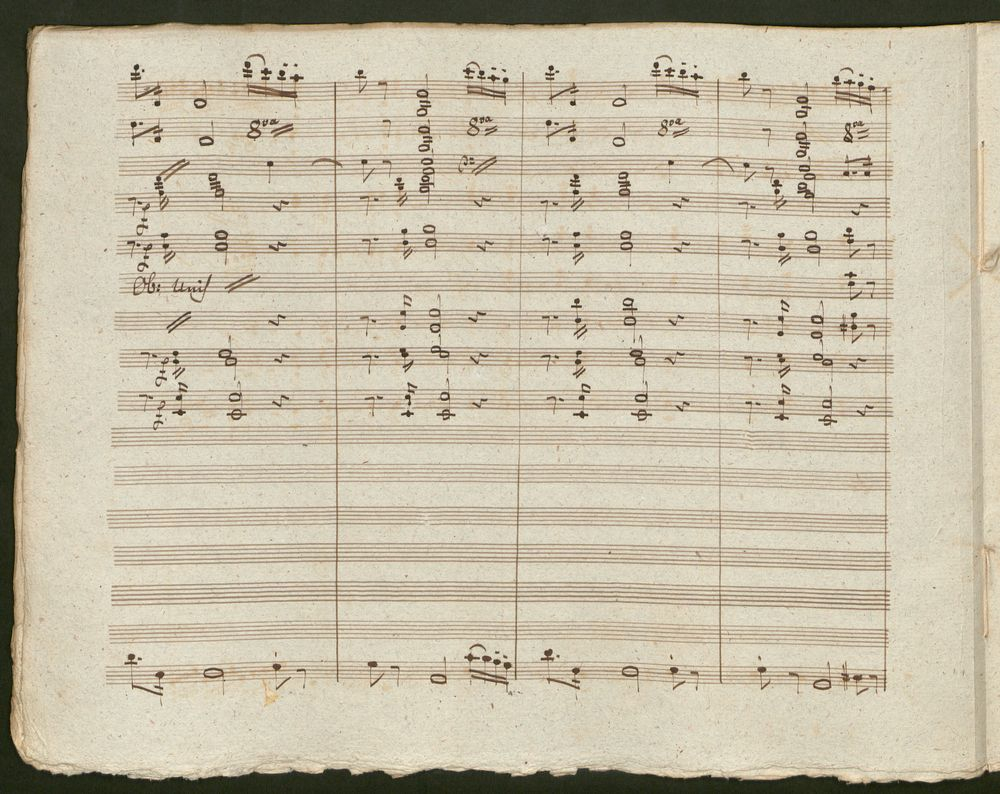 8va 8va 8va 8va
Ob: Unis